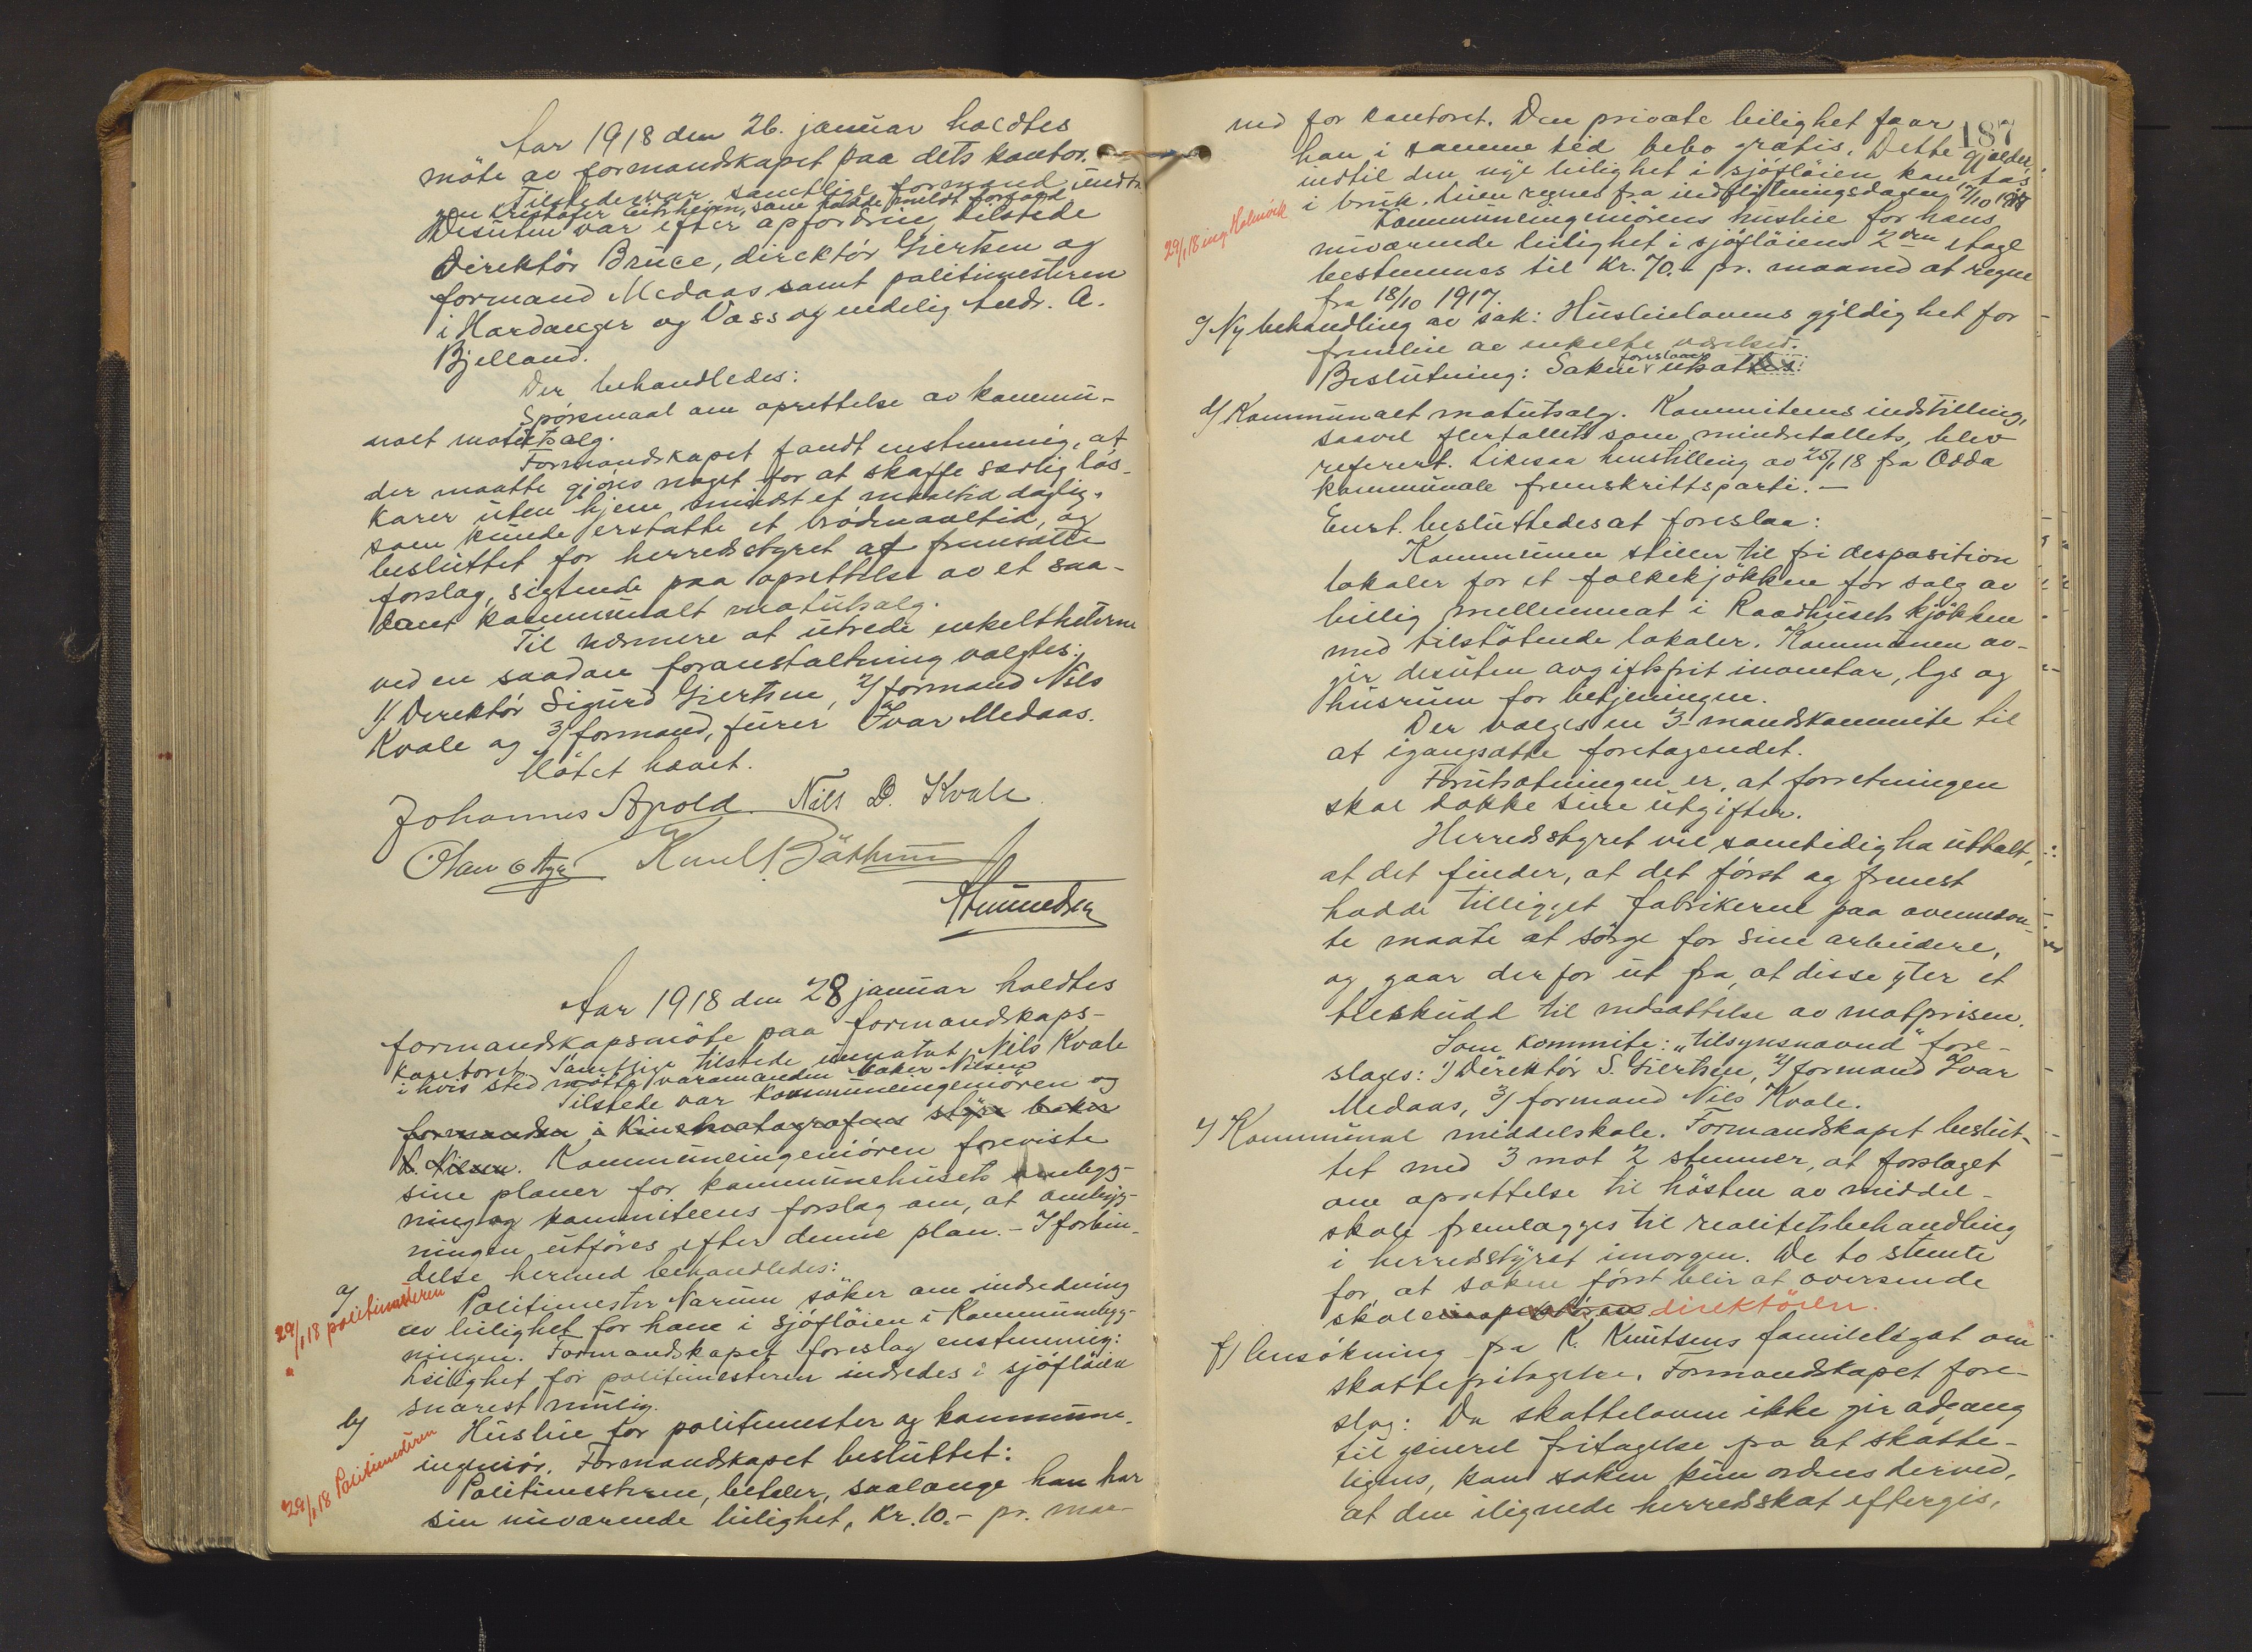 Aar 1918 den 26. januar holdtes
möte av formandskapet paa dets kontor.
Tilstede var samtlige formænd undta-
gen Kristofer Eitrheim, som hadde meldt forfald
Desuten var efter opfordring tilstede
Direktör Bruce, direktör Giertsen og
formand Medaas samt politimesteren
i Hardanger og Voss og endelig Andr. A.
Bjelland.
Der behandledes:
Spörsmaal om oprettelse av kommu-
nalt matutsalg.
Formandskapet fandt enstemmig, at
der maatte gjöres noget for at skaffe særlig lös-
karer uten hjem mindst et maaltid daglig,
som kunde erstatte et brödmaaltid, og
besluttet for herredsstyret at fremsætte
forslag, sigtende paa oprettelse av et saa-
dant kommunalt matutsalg.
Til nærmere at utrede enkelthetene
ved en saadan foranstaltning valgtes:
1/ Direktör Sigurd Giertsen, 2/ formand Nils
Kvale og 3/ formand, furer Ivar Medaas.
Mötet hævet.
Johannes Apold Nils D. Kvale
Olav O Aga Knul Böthun
Amundsen
Aar 1918 den 28 januar holdtes
formandskapsmöte paa formandskaps-
kontoret. Samtlige tilstede undtat Nils Kvale
i hvis sted mötte varamanden Baker Nilsen
Tilstede var kommuneingeniören og
formanden i Kinematografens styre baker
L. Nilsen. Kommuneingeniören foreviste
sine planer for kommunehusets ombyg-
ning og kommiteens forslag om, at ombyg-
ningen utföres efter denne plan. - I forbin-
delse hermed behandledes:
a/ Politimester Narum söker om indredning
29/1 18 politimesteren
av leilighet for ham i sjöflöien i Kommunebyg-
ningen. Formandskapet foreslog enstemmig:
Leilighet for politimesteren indredes i sjöflöien
snarest mulig.
b/ Husleie for politimester og kommune-
29/1 18 Politimesteren
ingeniör. Formandskapet besluttet:
Politimesteren, betaler, saalænge han har
sin nuværende leilighet, kr. 10.- pr. maa-
187
ned for kontoret. Den private leilighet faar
han i samme tid bebo gratis. Dette gjælder,
indtil den nye leilighet i sjöflöien kan tas
i bruk. Leien regnes fra indflytningsdagen 17/10 1917
29/1 18 ing. Holmvik
Kommuneingeniörens husleie for hans
nuværende leilighet i sjöflöiens 2den etage
bestemmes til Kr. 70.- pr. maaned at regne
fra 18/10 1917.
c/ Ny behandling av sak: Husleielovens gyldighet for
fremleie av enkelte værelser.
Beslutning: Saken foreslaaes utsættes.
d/ Kommunalt matutsalg. Kommiteens indstilling,
saavel flertallets som mindretallets, blev
referert. Likesaa henstilling av 25/1 18 fra Odda
kommunale fremskrittsparti. —
Enst. besluttedes at foreslaa:
Kommunen stiller til fri desposition
lokaler for et folkekjökken for salg av
billig mellemmat i Raadhusets kjökken
med tilstötende lokaler. Kommunen av-
gir desuten avgiftsfrit inventar, lys og
husrum for betjeningen.
Der vælges en 3-mandskommite til
at igangsætte foretagendet.
Forutsætningen er, at forretningen
skal dække sine utgifter.
Herredsstyret vil samtidig ha uttalt,
at det finder, at det först og fremst
hadde tilligget fabrikerne paa ovennevn-
te maate at sörge for sine arbeidere,
og gaar derfor ut fra, at disse yter et
tilskudd til nedsættelse av matprisen.
Som kommite: „tilsynsnævnd" fore-
slages: 1/ Direktör S. Giertsen, 2/ formand Ivar
Medaas, 3/ formand Nils Kvale.
e/ Kommunal middelskole. Formandskapet beslut-
tet med 3 mot 2 stemmer, at forslaget
om oprettelse til hösten av middel-
skole fremlægges til realitetsbehandling
i herredsstyret imorgen. De to stemte
for, at saken först blir at oversende
skoleinspektören direktören.
f/ Ansökning fra K. Knutsens familielegat om
skattefritagelse. Formandskapet fore-
slog: Da skatteloven ikke gir adgang
til generel fritagelse fra at skatte-
lignes, kan saken kun ordnes derved,
at den ilignede herredsskat eftergis,